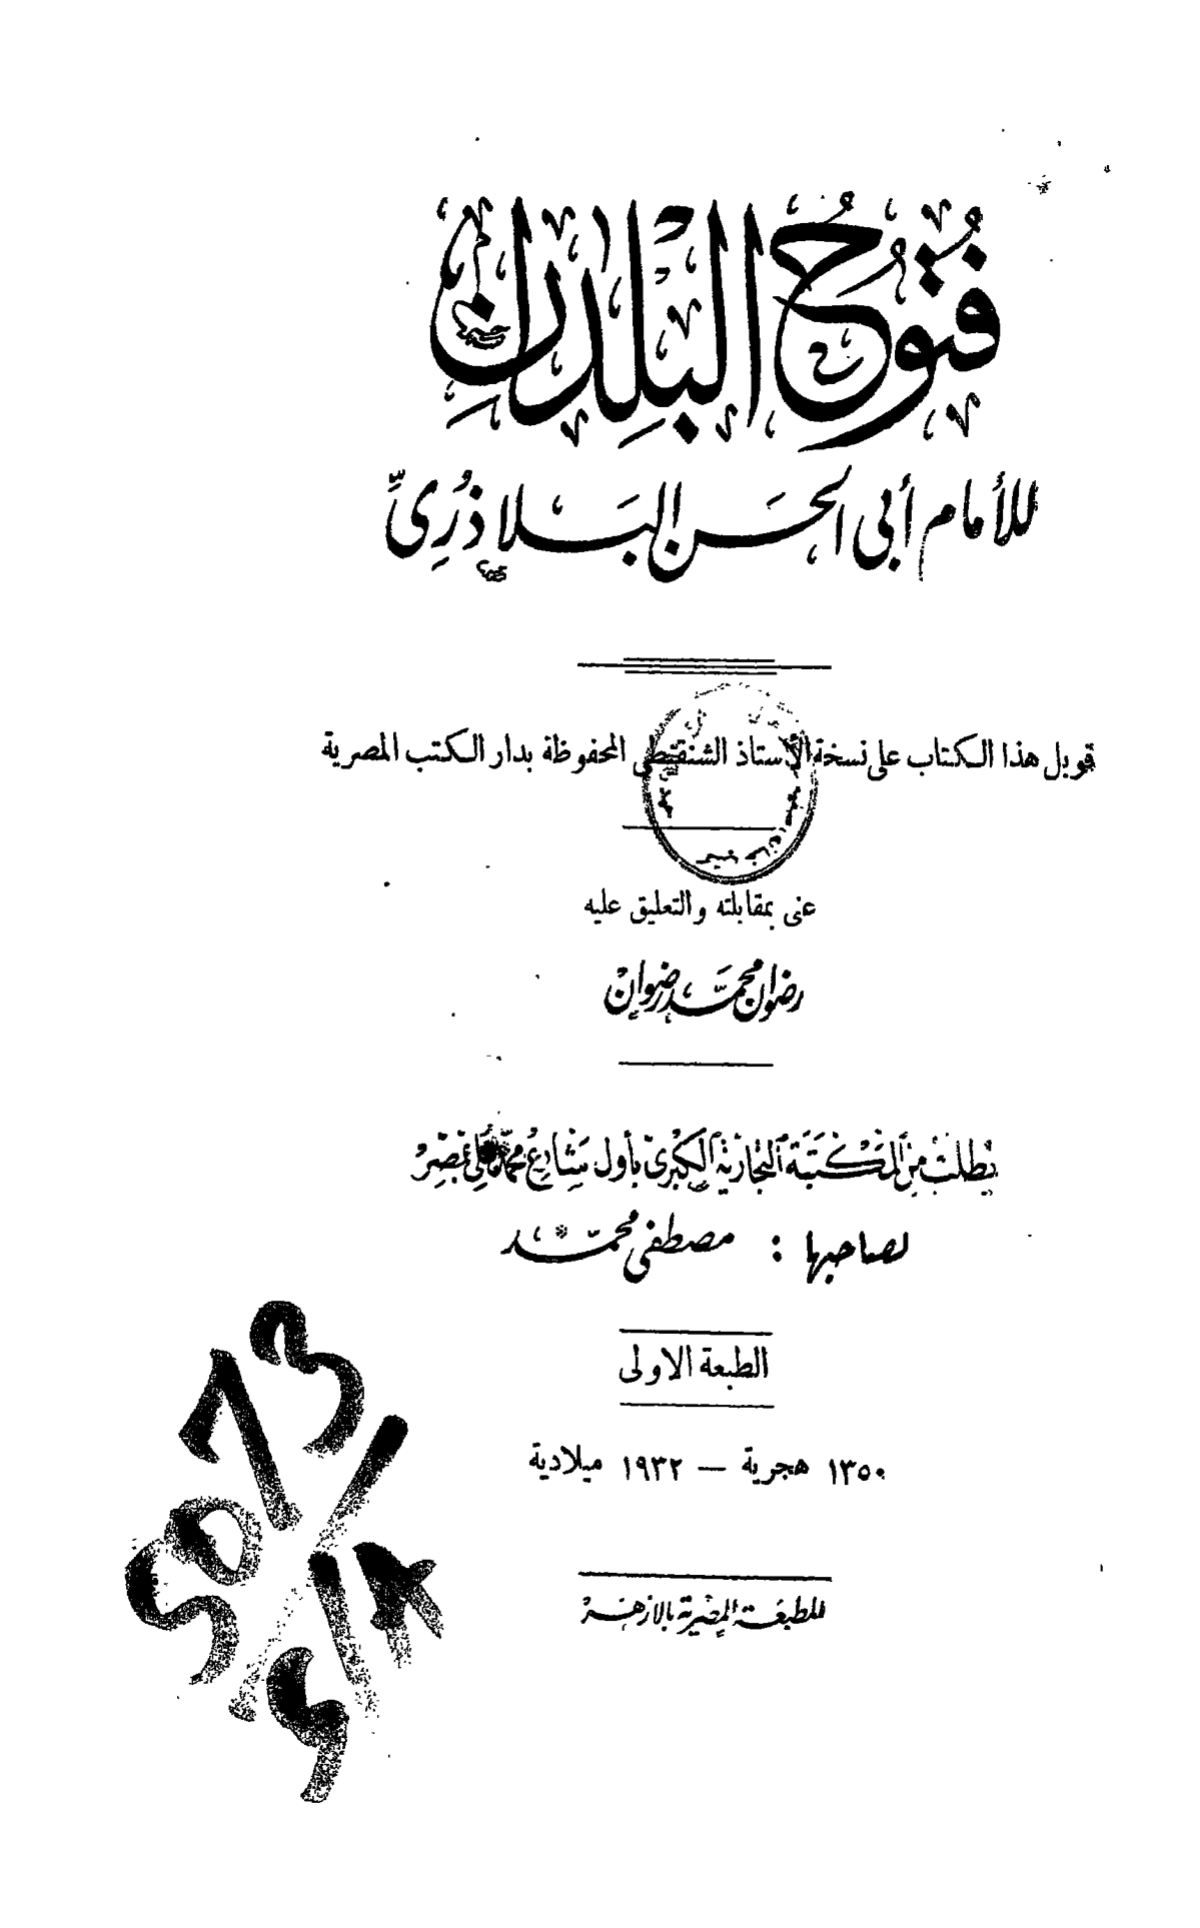 فُتُوحُ البُلْدَانِ
للأمام أبى الحسن البَلاذُرِىِّ
قوبل هذا الكتاب على نسخة الأستاذ الشنقيطى المحفوظة بدار الكتب المصرية
عنى بمقابلته والتعليق عليه
رضوان محمد رضوان
يطلب من المكتبة التجارية الكبرى بأول شارع محمد على بمصر
لصاحبها : مصطفى محمد
الطبعة الاولى
١٣٥٠ هجرية — ١٩٣٢ ميلادية
المطبعة المصرية بالازهر